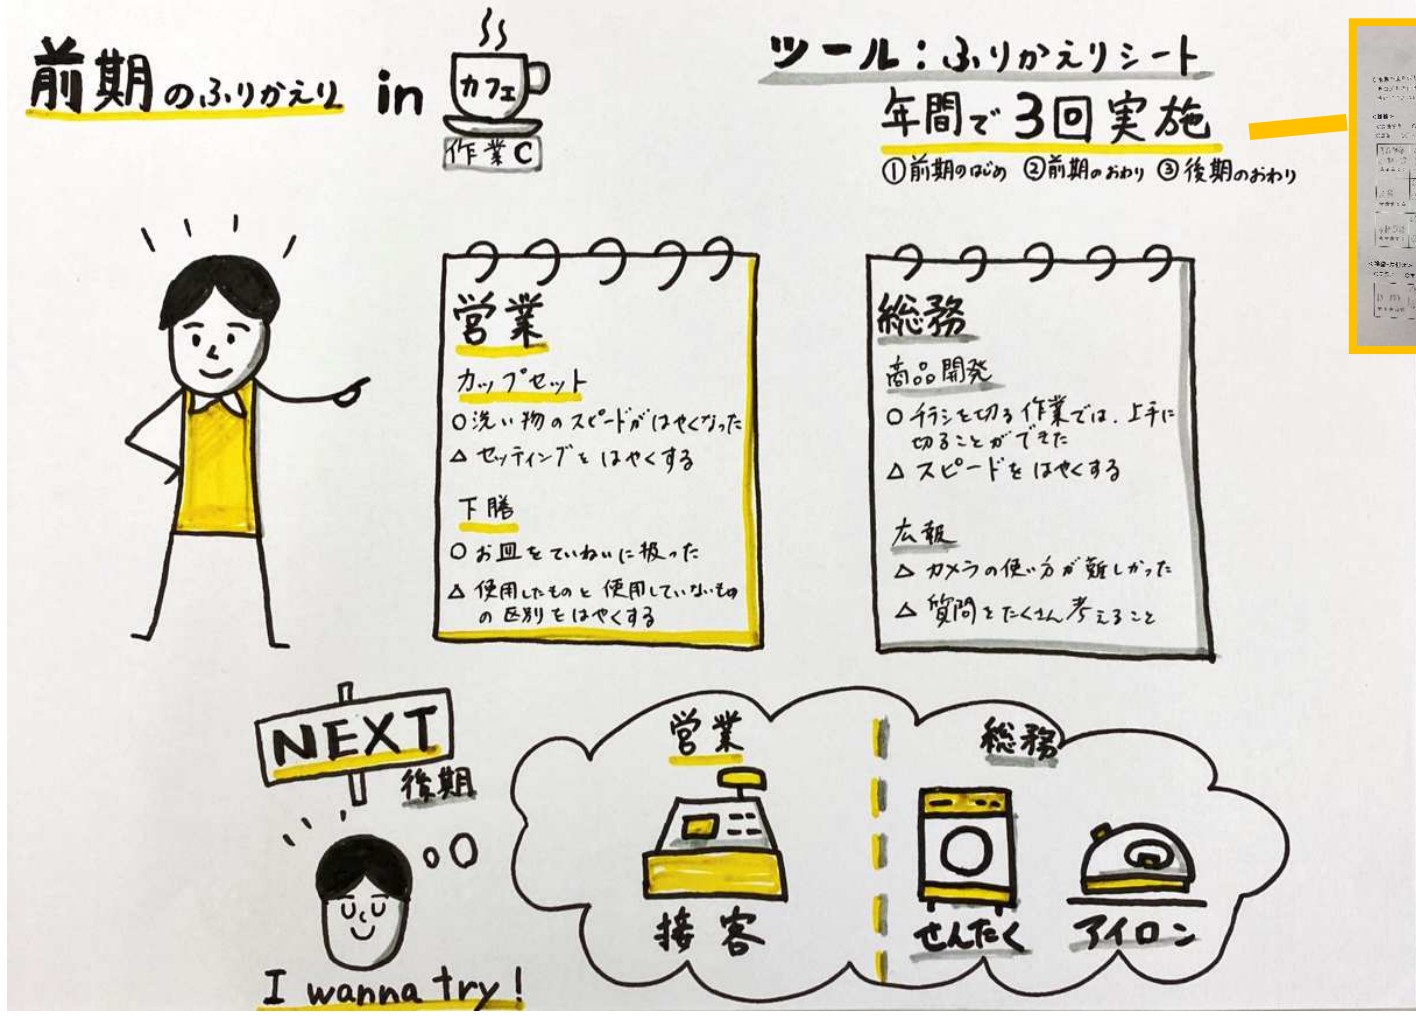 前期のふりかえり in カフェ
作業C
ツール：ふりかえりシート
年間で3回実施
①前期のはじめ ②前期のおわり ③後期のおわり
営業
カップセット
○洗い物のスピードがはやくなった
△セッティングをはやくする
下膳
○お皿をていねいに扱った
△使用したものと使用していないもの
の区別をはやくする
総務
商品開発
○チラシを切る作業では、上手に
切ることができた
△スピードをはやくする
広報
△カメラの使い方が難しかった
△質問をたくさん考えること
NEXT
後期
I wanna try!
営業
接客
総務
せんたく
アイロン